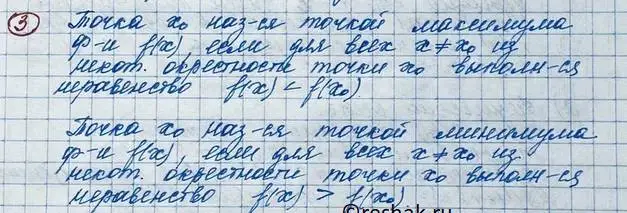 3 Точка x₀ наз-ся точкой максимума
ф-и f(x), если для всех x ≠ x₀ из
некот. окрестности точки x₀ выполн-ся
неравенство f(x) < f(x₀)
Точка x₀ наз-ся точкой минимума
ф-и f(x), если для всех x ≠ x₀ из
некот. окрестности точки x₀ выполн-ся
неравенство f(x) > f(x₀)
©reshak.ru